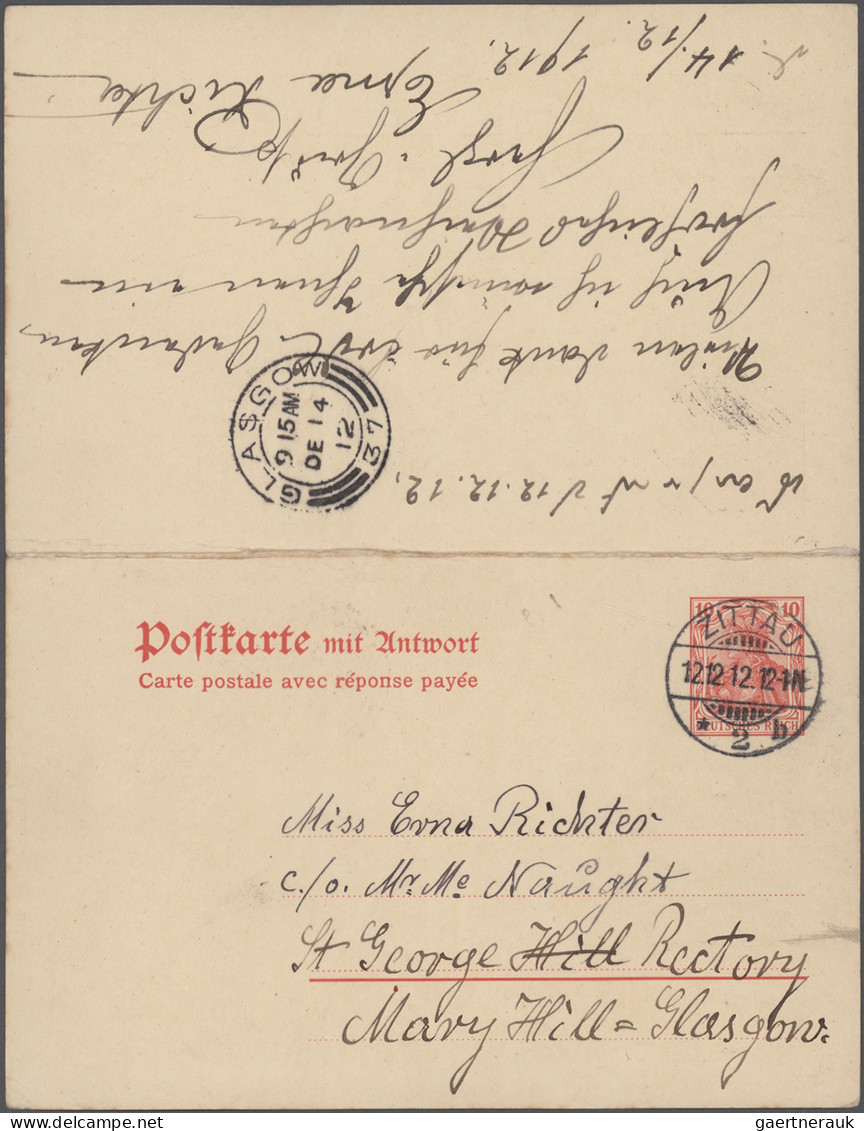 12.12.12.
Vielen Dank für
Auch ich wünsche Ihnen ein
fröhliches Weihnachten
Erna Richter
14/12. 1912.
GLASGOW
9 15 AM
DE 14
12
37
Postkarte mit Antwort
Carte postale avec réponse payée
10 10
DEUTSCHES REICH
ZITTAU
12.12.12.12-1N.
* 2 b
Miss Erna Richter
c./o. Mr. Mc Naught
St George Hill Rectory
Mary Hill = Glasgow.
gaertnerauk